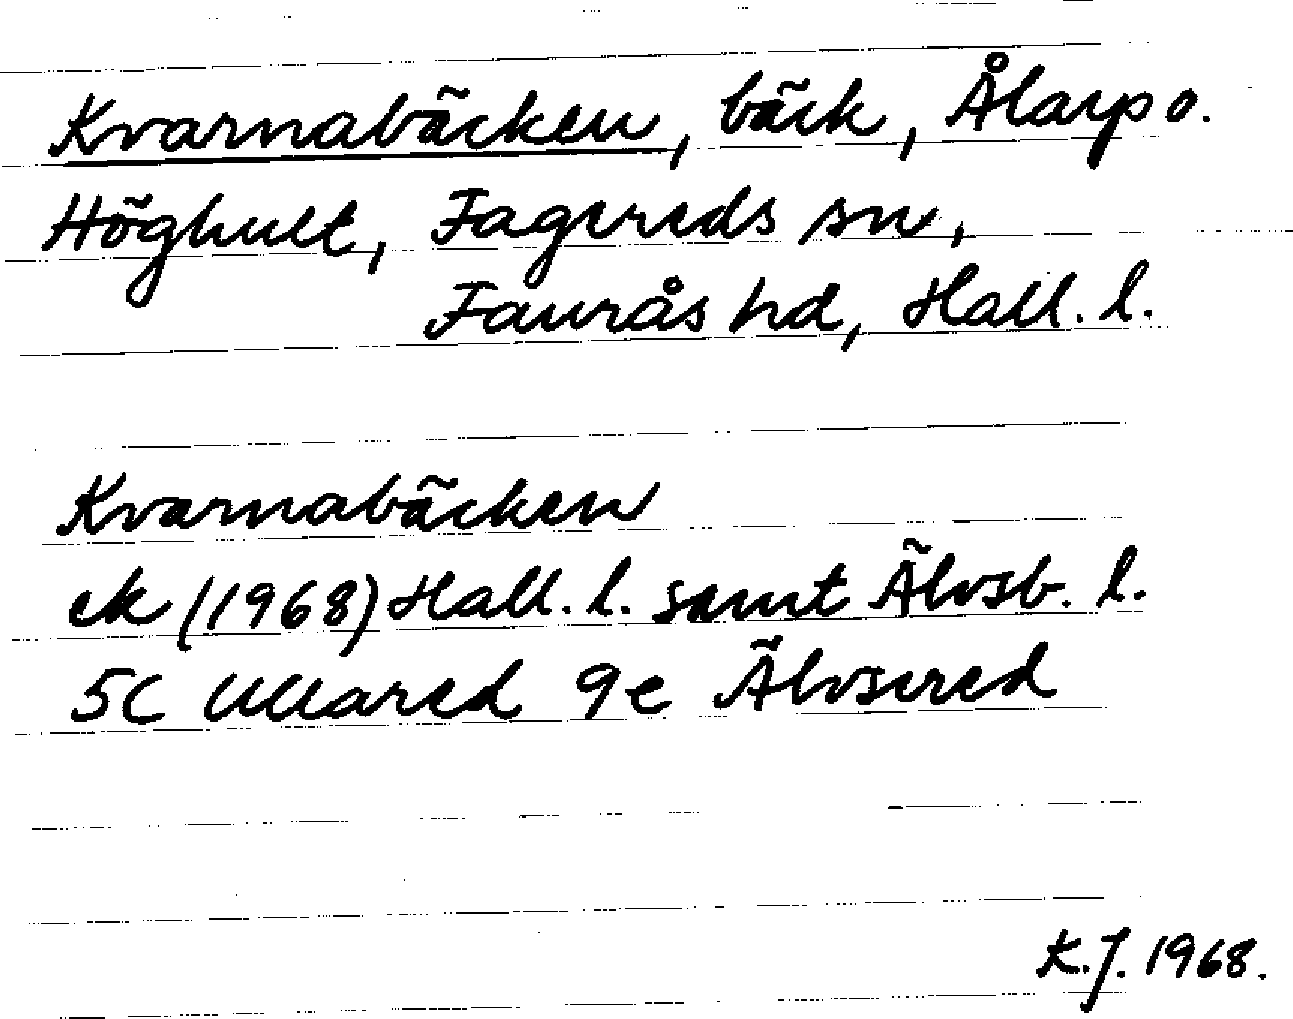 Kvarnabäcken, bäck, Ålarp o.
Höghult, Fagereds sn,
Faurås hd, Hall. l.
Kvarnabäcken
ek (1968) Hall. l. samt Älvsb. l.
5C Ullared 9e Älvsered
K.J. 1968.